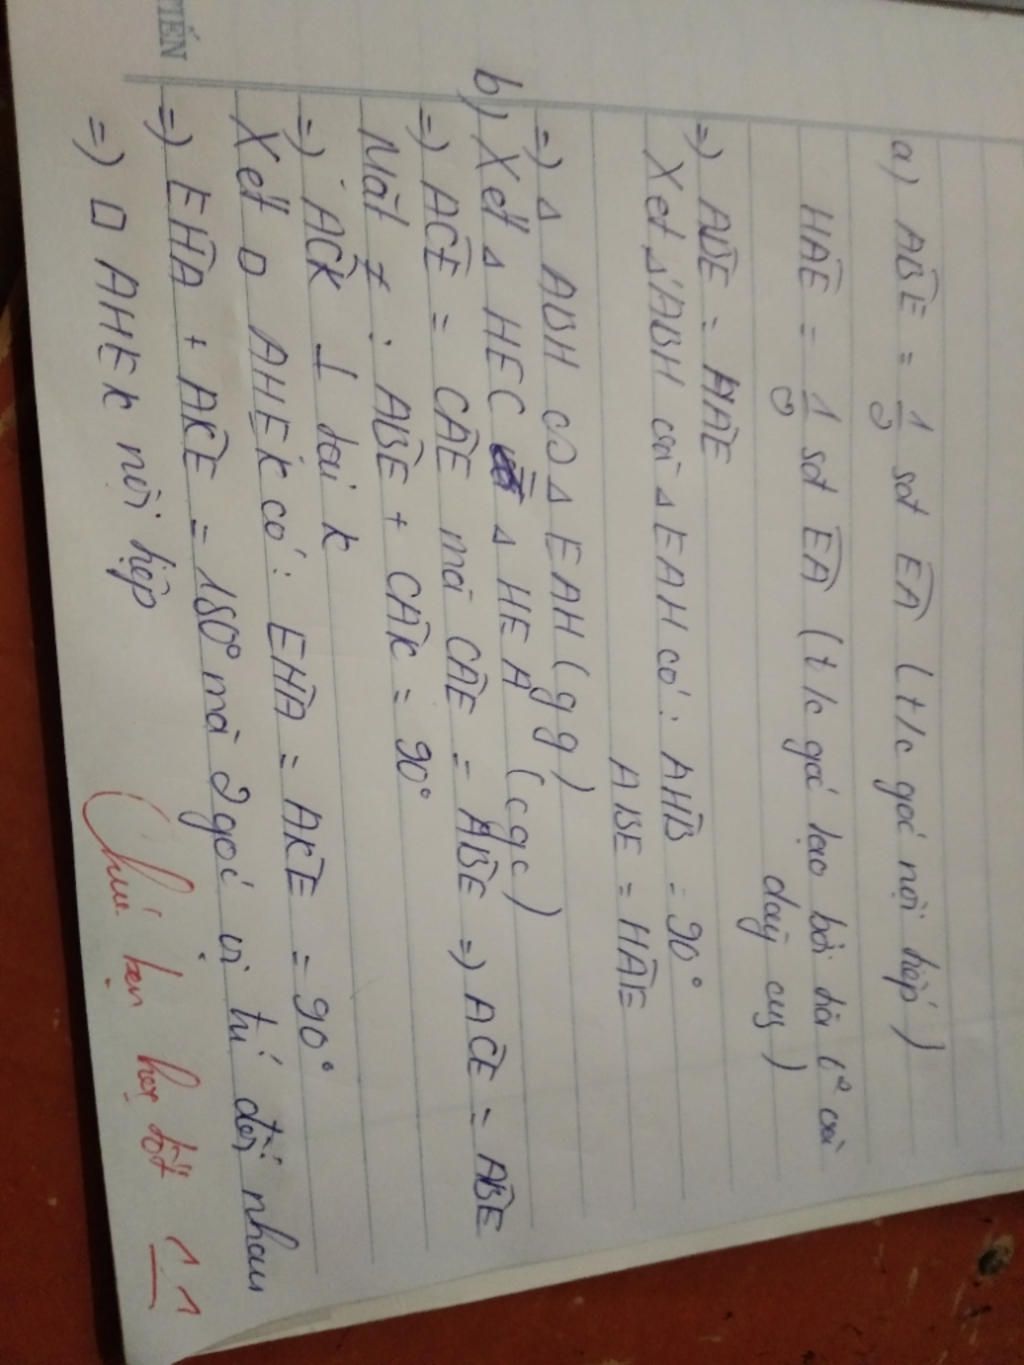 TIẾN
a) ABÊ = 1/2 sđ EA (t/c góc nội tiếp)
HAÊ = 1/2 sđ EA (t/c góc tạo bởi tia t² và
dây cung)
=) ABÊ = HAÊ
Xét Δ ABH và Δ EAH có: AHB = 90°
ABE = HAE
=) Δ ABH ∽ Δ EAH (gg)
b) Xét Δ HEC Δ HEA (cgc)
=) ACE = CAE mà CAE = ABE =) ACE = ABE
Mặt ≠ : ABE + CAK = 90°
=) ACK ⊥ tại K
Xét □ AHEK có: EHA = AKE = 90°
=) EHA + AKE = 180° mà 2 góc vị trí đối nhau
=) □ AHEK nội tiếp
Chúc bạn học tốt ^^